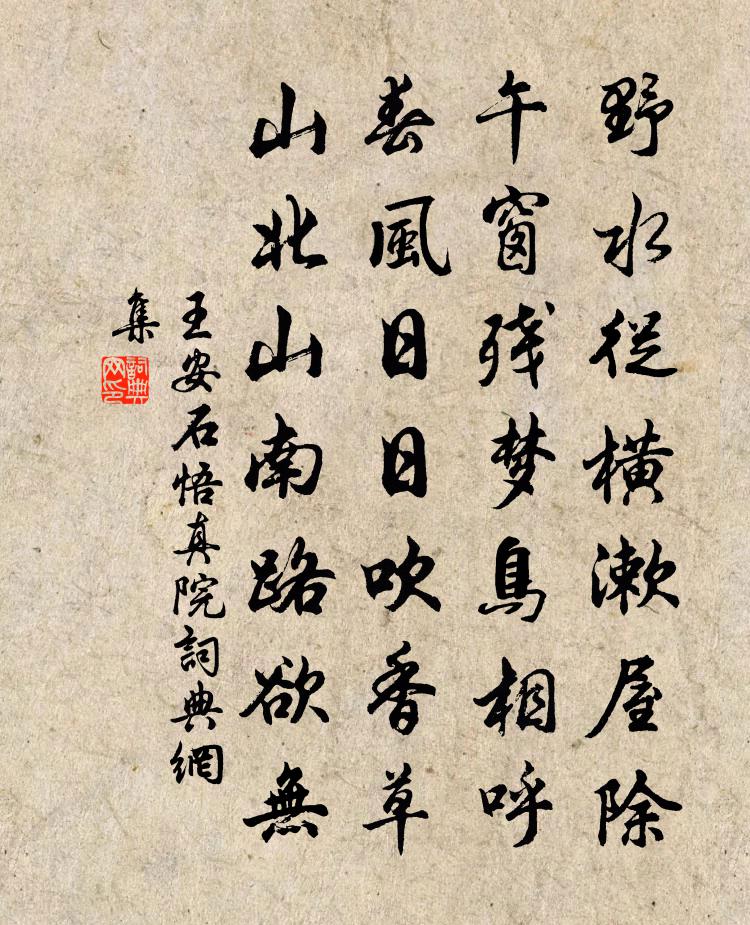 野水從橫漱屋除
午窗残梦鳥相呼
春風日日吹香草
山北山南路欲無
王安石悟真院詞典網
集
詞典网印